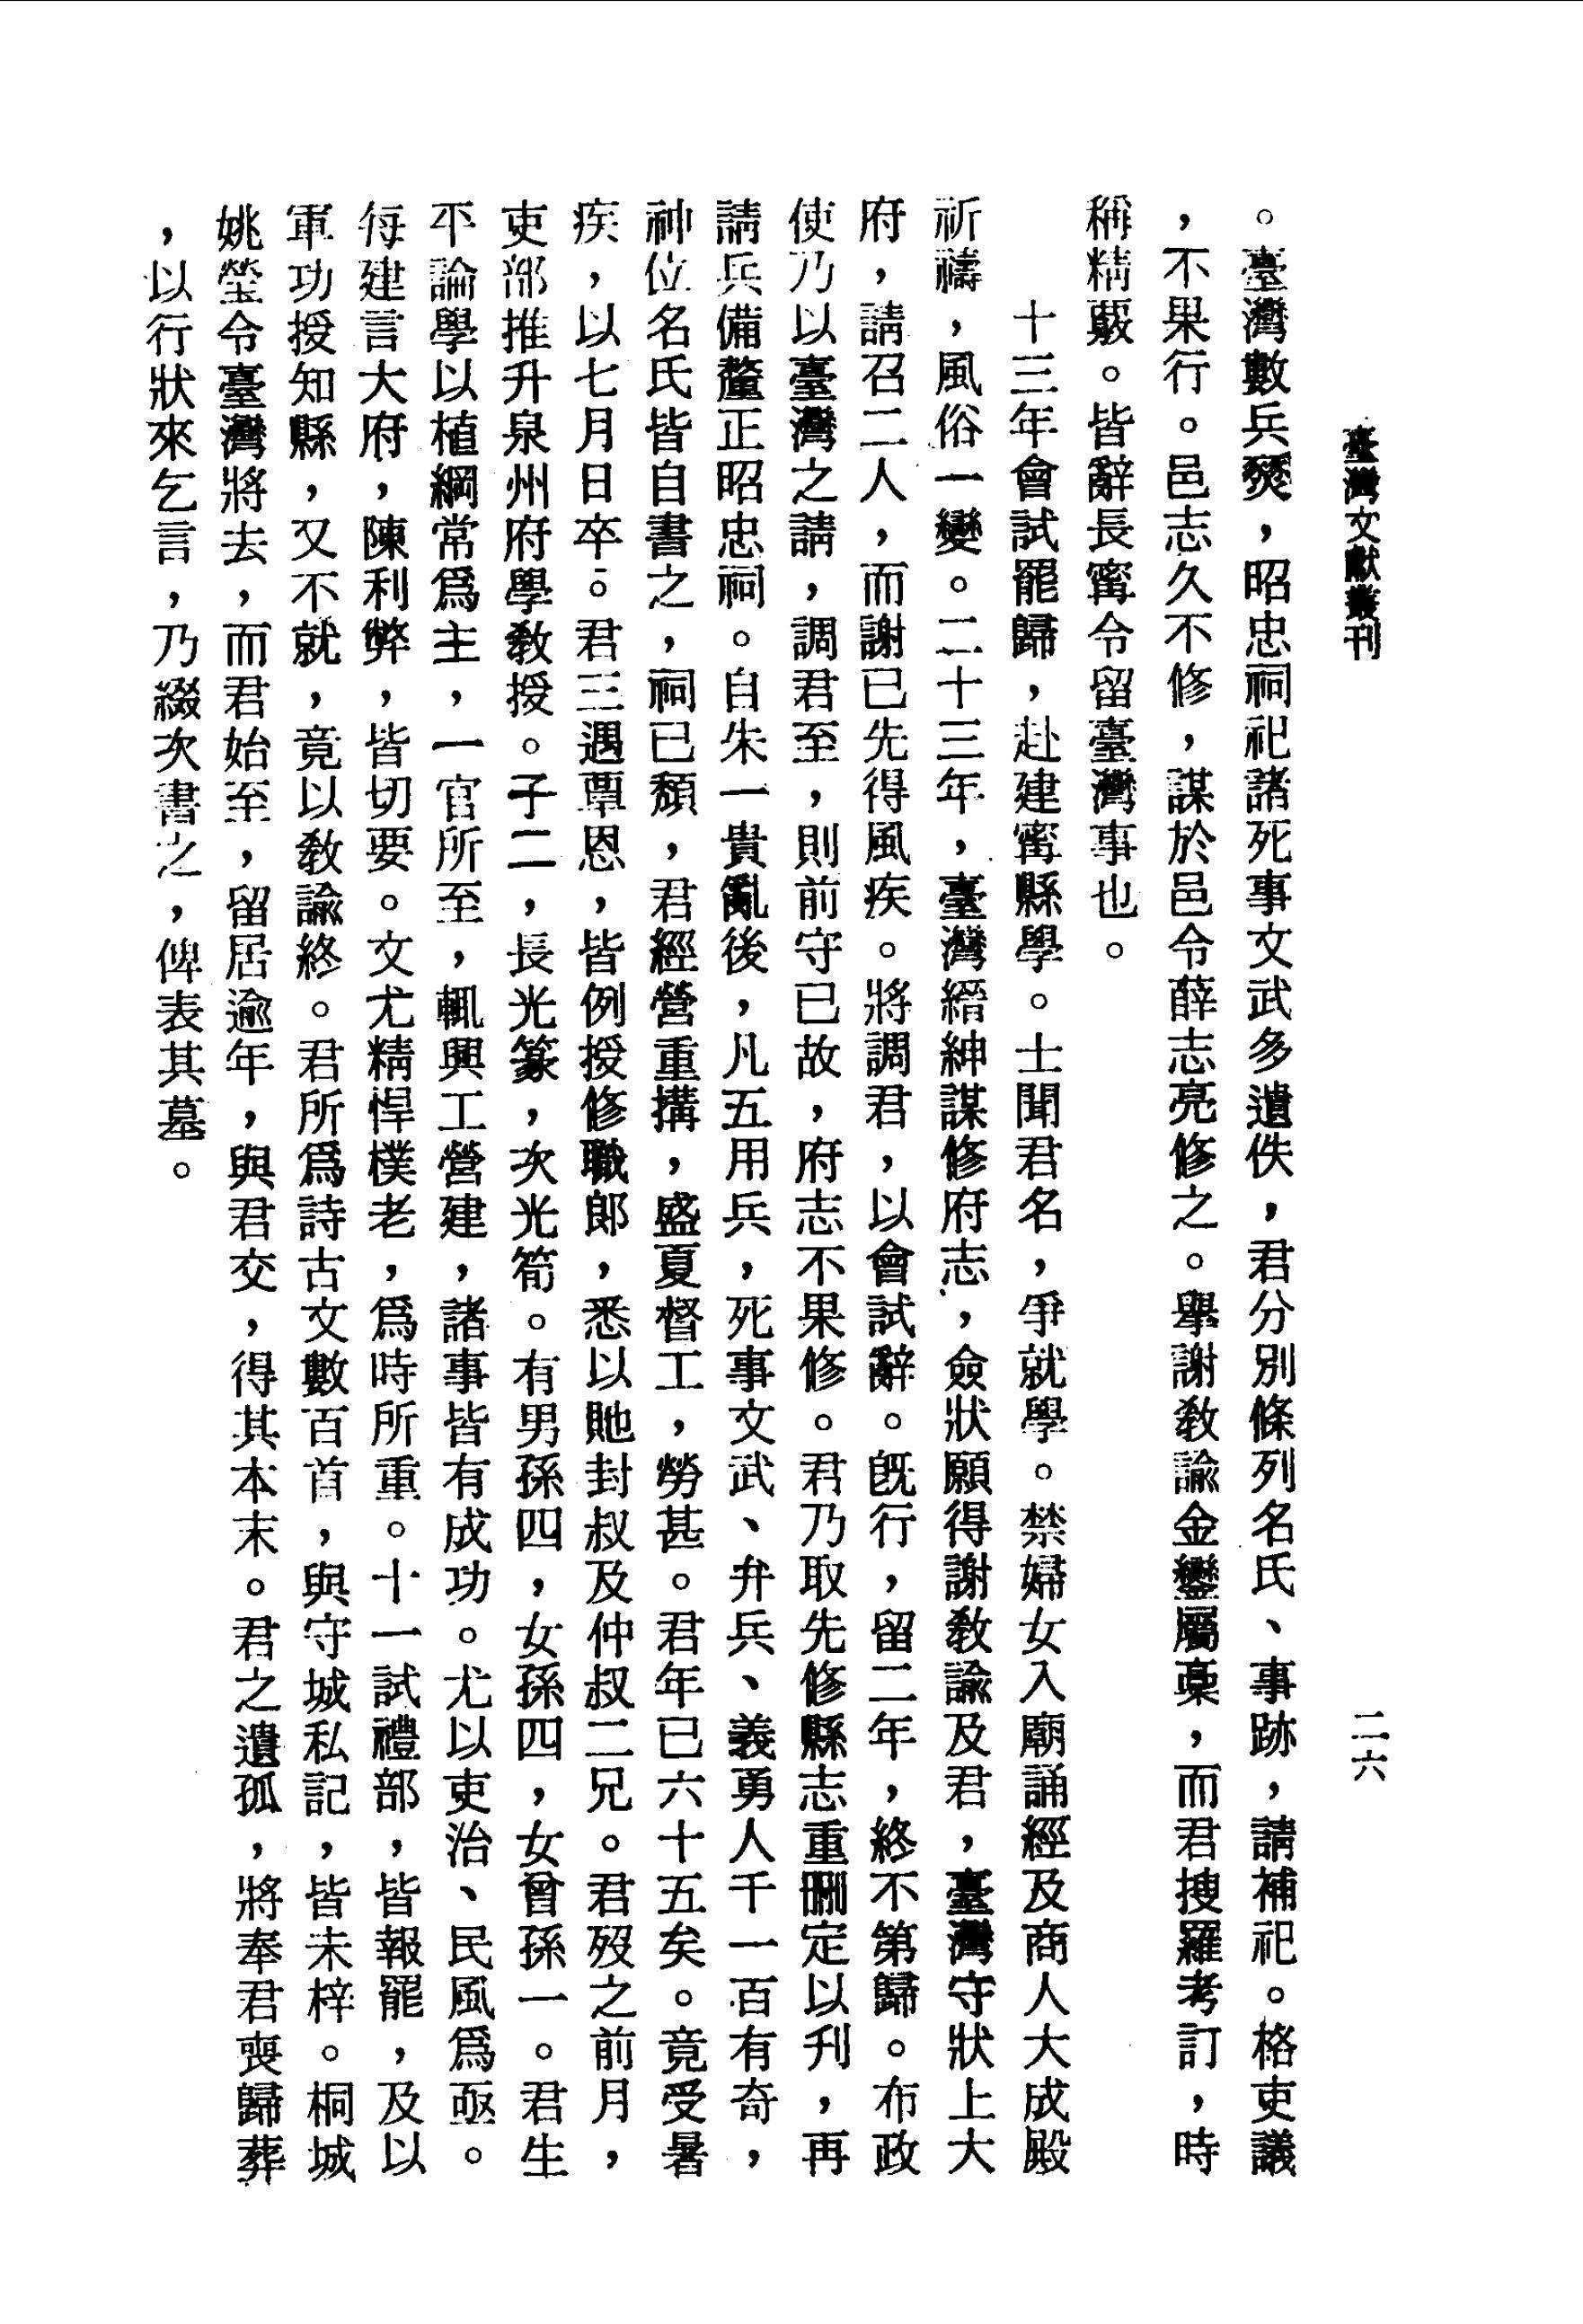 臺灣文獻叢刊
二六
。臺灣數兵燹，昭忠祠祀諸死事文武多遺佚，君分別條列名氏、事跡，請補祀。格吏議
，不果行。邑志久不修，謀於邑令薛志亮修之。舉謝敎諭金鑾屬稾，而君搜羅考訂，時
稱精覈。皆辭長甯令留臺灣事也。
十三年會試罷歸，赴建甯縣學。士聞君名，爭就學。禁婦女入廟誦經及商人大成殿
祈禱，風俗一變。二十三年，臺灣縉紳謀修府志，僉狀願得謝敎諭及君，臺灣守狀上大
府，請召二人，而謝已先得風疾。將調君，以會試辭。旣行，留二年，終不第歸。布政
使乃以臺灣之請，調君至，則前守已故，府志不果修。君乃取先修縣志重刪定以刋，再
請兵備釐正昭忠祠。自朱一貴亂後，凡五用兵，死事文武、弁兵、義勇人千一百有奇，
神位名氏皆自書之，祠已頹，君經營重搆，盛夏督工，勞甚。君年已六十五矣。竟受暑
疾，以七月日卒。君三遇覃恩，皆例授修職郎，悉以貤封叔及仲叔二兄。君歿之前月，
吏部推升泉州府學敎授。子二，長光篆，次光筍。有男孫四，女孫四，女曾孫一。君生
平論學以植綱常爲主，一官所至，輒興工營建，諸事皆有成功。尤以吏治、民風爲亟。
每建言大府，陳利弊，皆切要。文尤精悍樸老，爲時所重。十一試禮部，皆報罷，及以
軍功授知縣，又不就，竟以敎諭終。君所爲詩古文數百首，與守城私記，皆未梓。桐城
姚瑩令臺灣將去，而君始至，留居逾年，與君交，得其本末。君之遺孤，將奉君喪歸葬
，以行狀來乞言，乃綴次書之，俾表其墓。